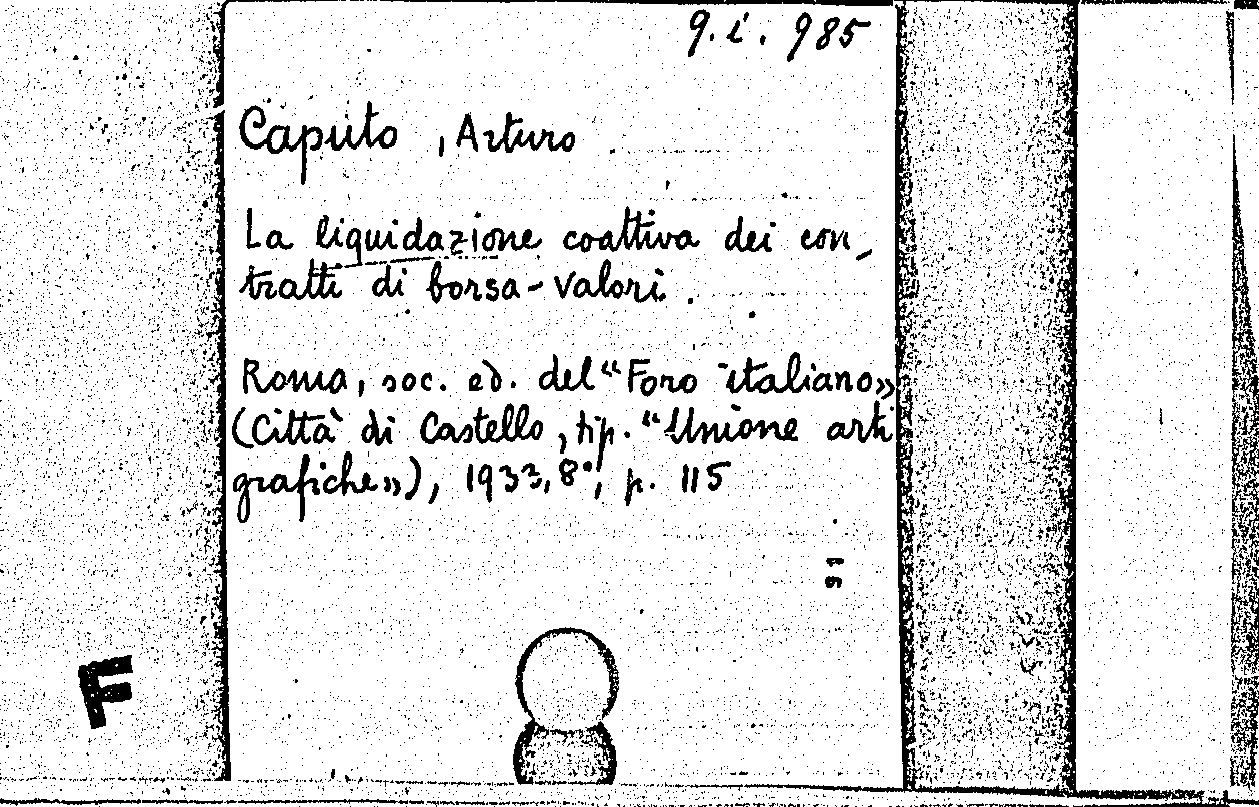 9. i. 985
Caputo, Arturo.
La liquidazione coattiva dei con-
tratti di borsa-valori.
Roma, soc. ed. del "Foro italiano»
(Città di Castello, tip. "Unione arti
grafiche»), 1933, 8°, p. 115
F